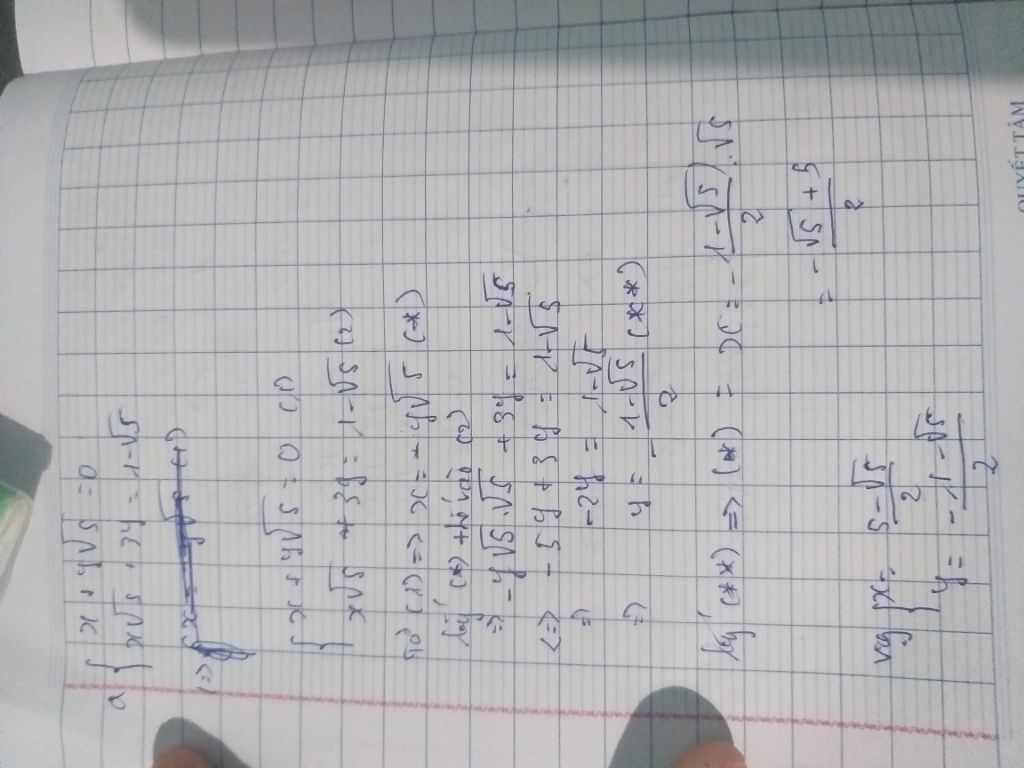 a { x + y√5 = 0
x√5 + 3y = 1-√5
x + y√5 = 0 (1)
x√5 + 3y = 1-√5 (2)
Từ (1) => x = - y√5 (*)
lấy (*) thế vào (2)
=> -y√5.√5 + 3y = 1-√5
<=> -5y + 3y = 1-√5
= -2y = 1-√5
=> y = - 1-√5/2 (**)
lấy (**) => (*) = x = - 1-√5/2 . √5
= - √5 + 5/2
vậy { x = 5-√5/2
y = - 1-√5/2
QUYẾT TÂM